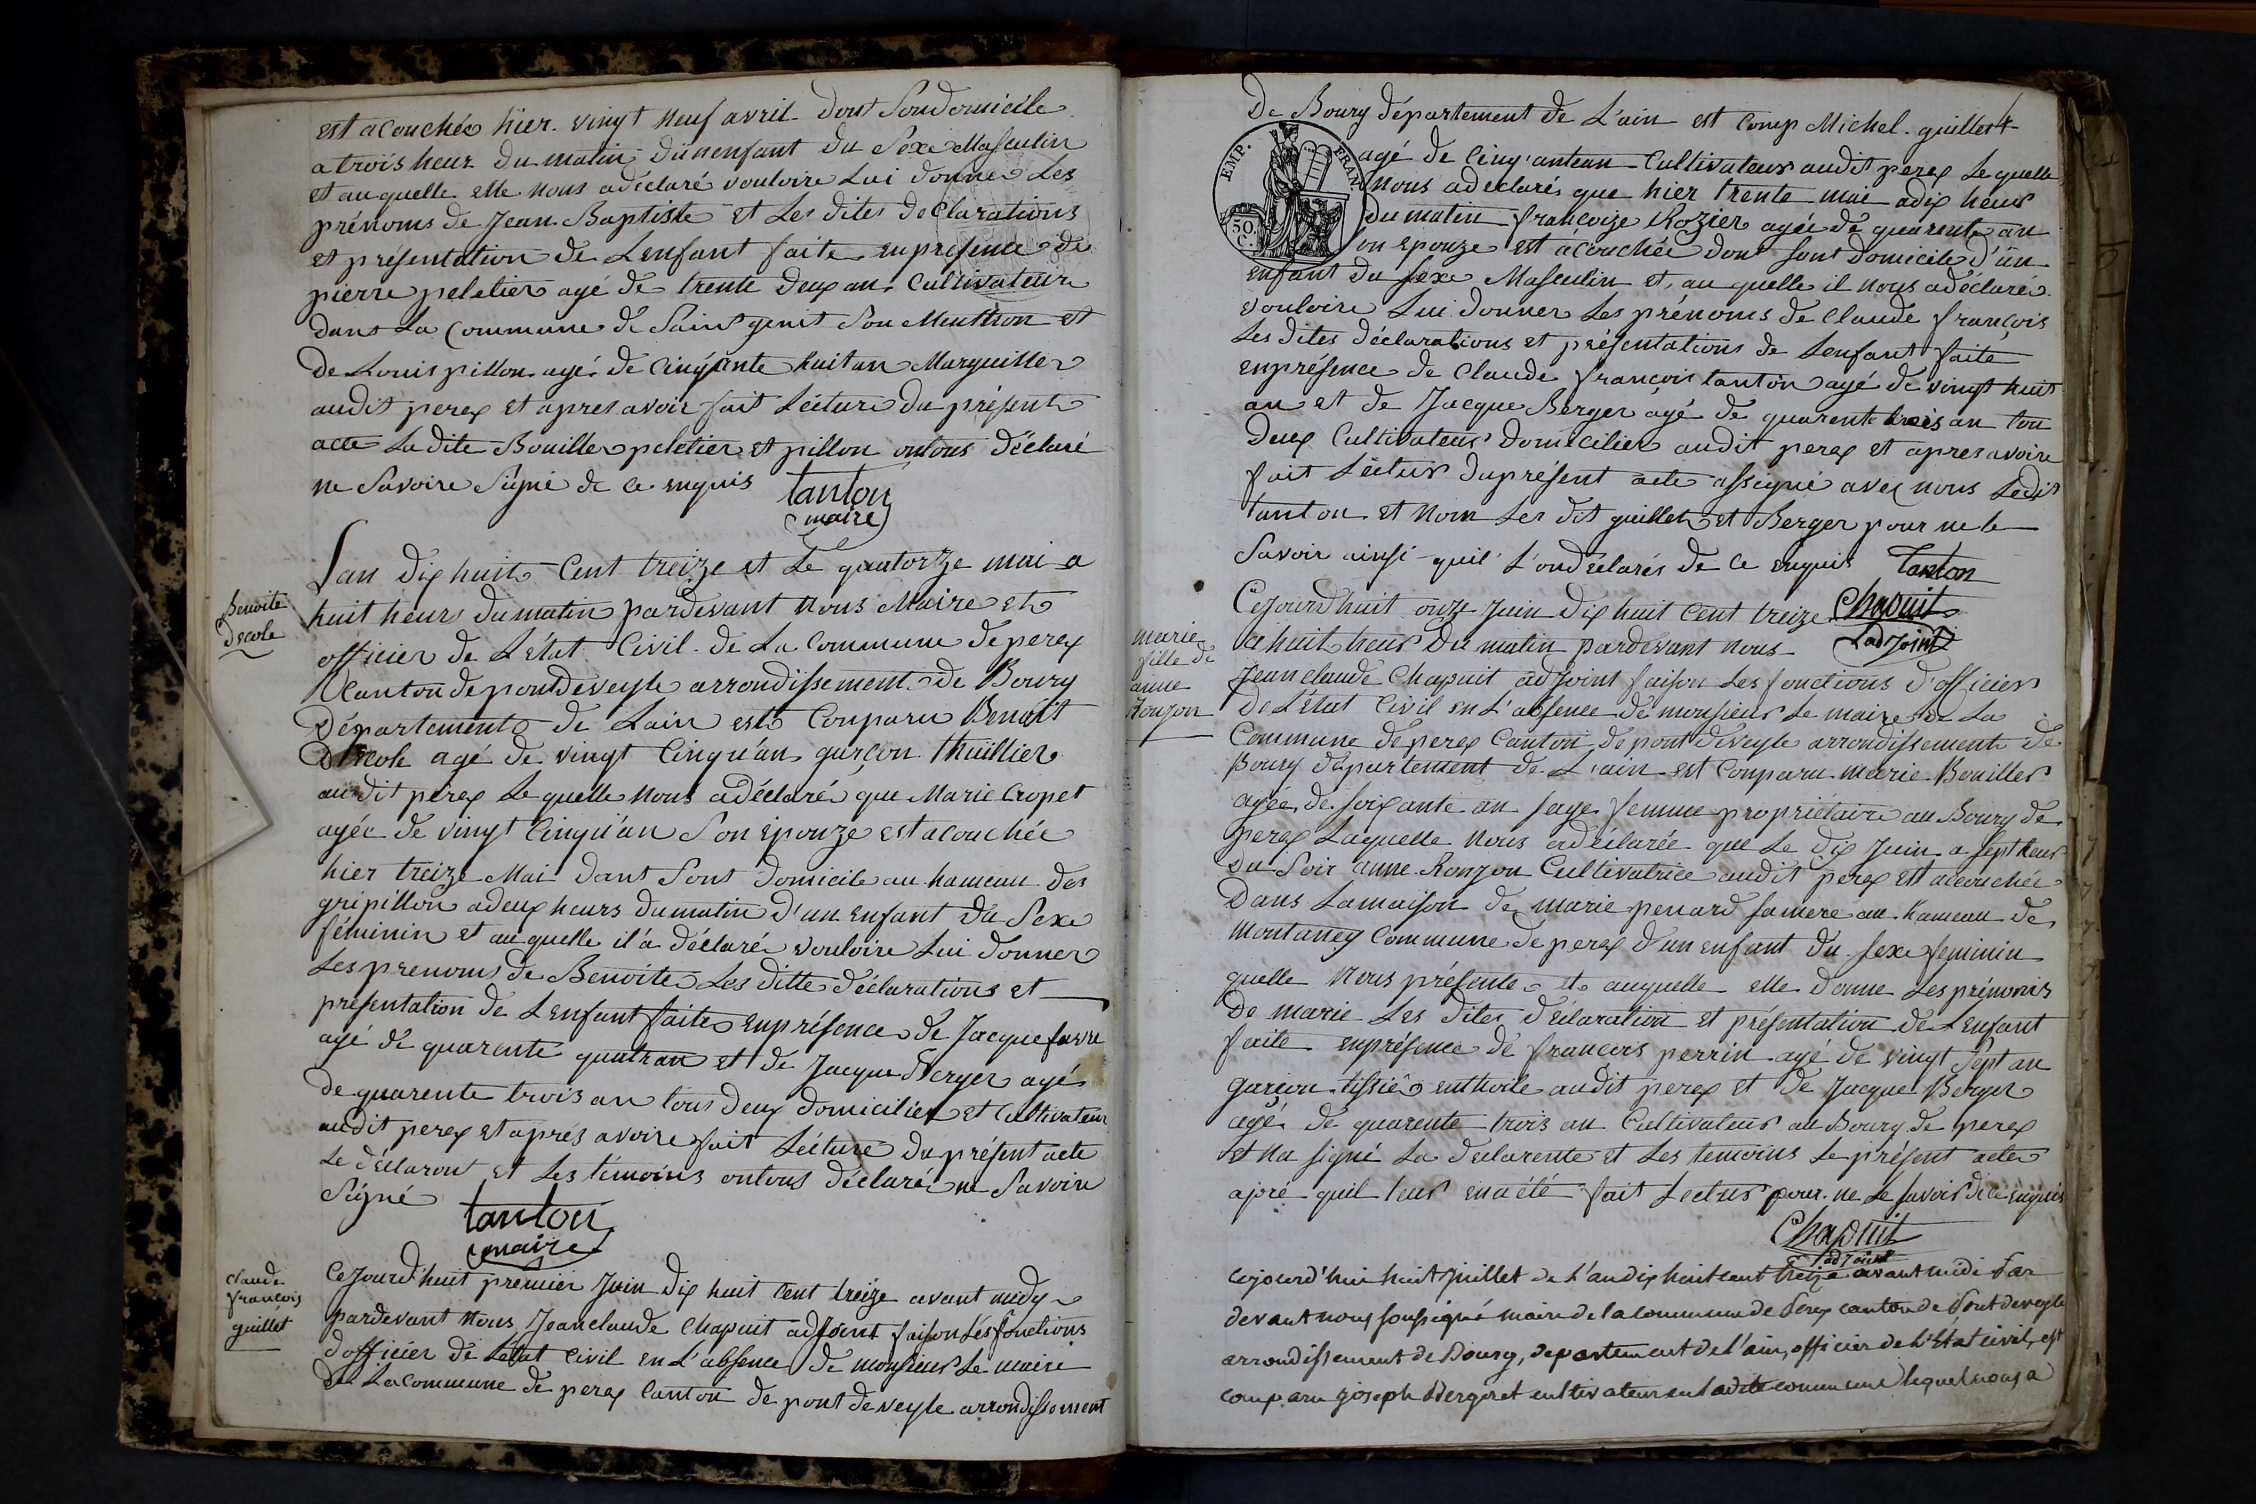 est acouchée hier vingt neuf avril dont Son domicile
a trois heur du matin d'un enfant du Sexe Masculin
et auquelle elle nous a déclaré vouloire Lui donner Les
prénoms de Jean Baptiste et Les dites déclarations
et présentation de Lenfant faite en présence de
pierre peletier agé de trente deux an Cultivateur
dans La Commune de Saint genit Sou Menthon et
de Louis pillon agé de Cinqante huit an Marguiller
audit perex et apres avoir fait Lecture du présent
acte La dite Bouiller peletier et pillon ontous déclaré
ne Savoire Signé de ce enquis tanton
maire
Lan dix huit Cent treize et Le quatorze mai a
Benoite
Decole
huit heurs du matin pardevant nous Maire et
officier de L'état Civil de La Commune de perex
Canton de pont de veyle arrondissement de Bourg
Département de Lain est Conparu Benoit
Decole agé de vingt Cinqu'an garçon thuillier
audit perex Le quelle nous a déclaré que Marie Cropet
agée de vingt Cinqu'an Son épouze est acouchée
hier treize Mai dant Sont domicile au hameau des
gripillon a deux heurs du matin d'un enfant du Sexe
féminin et au quelle il a déclaré vouloire Lui donner
Les prenoms de Benoite Les ditte déclarations et
présentation de Lenfant faite en présence de Jacque favre
agé de quarente quatran et de Jacque Berger agé
de quarente trois an tous deux domicilier et Cultivateur
audit perex et après avoire fait Lecture du présent acte
Le déclaront et Les témoins ontous déclaré ne Savoire
Signé tanton
maire
Claude
françois
guillet
Cejourd'huit premier Juin dix huit Cent treize avant midy
pardevant nous Jean claude Chapuit adjoint faison Les fonctions
d'officier de L'état Civil en L'absence de monsieur Le maire
de La commune de perex Canton de pont de veyle arrondissement
De Bourg département de L'ain est Comp Michel guillet
EMP. FRAN.
50 C.
agé de Cinq'antean Cultivateur audit perex Le quelle
nous a déclaré que hier trente mai a dix heur
du matin françoize Rozier agée de quarente an
Son epouze est acouchée dont Sont domicile d'un
enfant du Sexe Masculin et au quelle il nous a déclaré
vouloire Lui donner Les prénoms de Claude françois
Les dites déclarations et présentations de Lenfant faite
en présence de Claude françois tanton agé de vingt huit
an et de Jacque Berger agé de quarente trois an tou
deux Cultivateur domicilier audit perex et apres avoire
fait Lectur du présent acte a ssigné avec nous Ledit
tanton et nom Les dit guillet et Berger pour ne le
Savoir ainsi quil L'ondéclarés de ce enquis Tanton
Chapuit
L'adjoint
Cejourdhuit onze Juin dix huit Cent treize
marie
fille de
anne
Ronzon
a huit heur Du matin pardevant nous
Jean claude Chapuit adjoint faison Les fonctions d'officier
De L'état Civil en L'absence de monsieur Le maire de La
Commune de perex Canton de pont de veyle arrondissement de
Bourg département de L'ain est Conparu marie Bouiller
agée de soixante an sage femme propriétaire au Bourg de
perex Laquelle nous a déclarée que Le dix Juin a sept heur
du Soir anne Ronzon Cultivatrice audit perex est accouchée
Dans La maison de marie penard sa mere au hameau de
montaney Commune de perex d'un enfant du sexe feminin
quelle nous présente et auquelle elle donne Les prénoms
De marie Les dites déclaration et présentation de Lenfant
faite en présence de françois perrin agé de vingt sept an
garçon tissié en thoile audit perex et de Jacque Berger
agé de quarente trois an Cultivateur au Bourg de perex
et na signé La declarente et Les temoins Le présent acte
apré quil Leur en a été fait Lectur pour ne Le savoir de ce enquis
Chapuit
l'adjoint
cejourd'hui huit juillet de l'an dix huit cent treize avant midi Par
devant nous soussigné maire de la commune de Perex canton de Pont de veyle
arrondissement de Bourg, département de l'ain, officier de l'Etat civil, est
comparu joseph Bergeret cultivateur en ladite commune lequel nous a